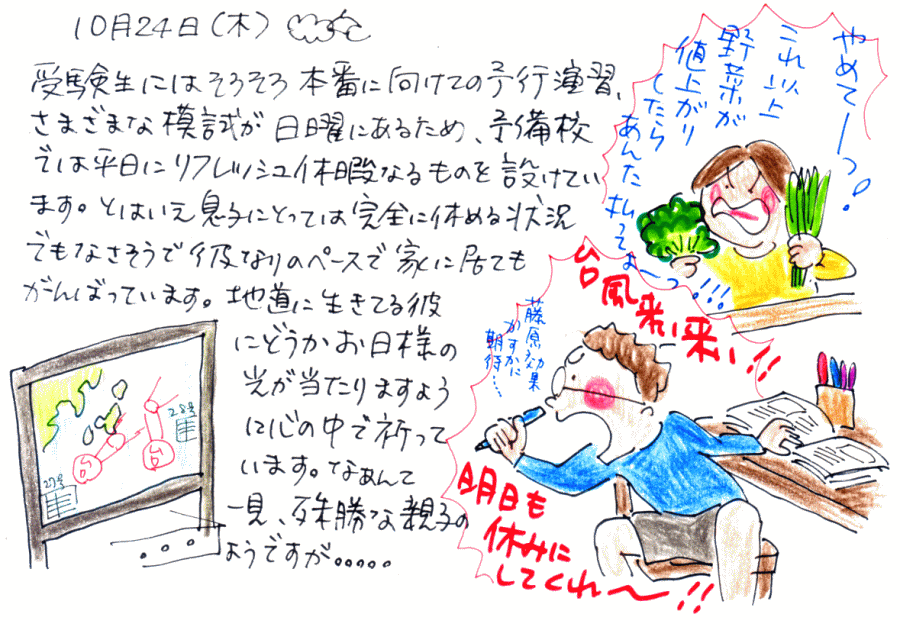 10月24日(木)
受験生にはそろそろ本番に向けての予行演習、
さまざまな模試が日曜にあるため、予備校
では平日にリフレッシュ休暇なるものを設けてい
ます。とはいえ息子にとっては完全に休める状況
でもなさそうで彼なりのペースで家に居ても
がんばっています。地道に生きてる彼
にどうかお日様の
光が当たりますよう
に心の中で祈って
います。なあんて
一見、殊勝な親子の
ようですが。。。。。
やめてーっ!
これ以上
野菜が
値上がり
したら
あんた払ってよ〜っ!!!
台風来い来い!!
藤原効果
かすかに
期待…
明日も
休みに
してくれ〜!!
28号
台
台
27号